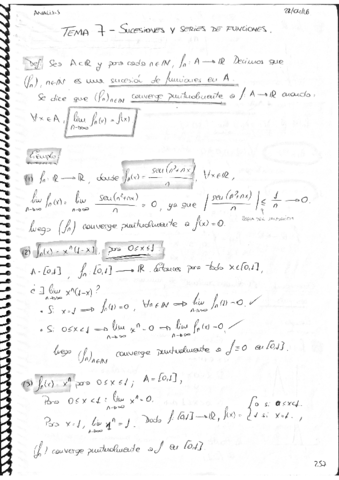 ANALISIS
TEMA 7 - SUCESIONES Y SERIES DE FUNCIONES.
Def Sea A⊂ℝ y para cada n∈ℕ, fₙ: A→ℝ. Decimos que
(fₙ)ₙ∈ℕ es una sucesión de funciones en A
Se dice que (fₙ)ₙ∈ℕ converge puntualmente a f: A→ℝ cuando
∀x∈A, lim n→∞ fₙ(x) = f(x)
Ejemplo
(1) fₙ: ℝ→ℝ, donde fₙ(x) = sen(n²+nx)/n, ∀x∈ℝ,
lim n→∞ fₙ(x) = lim n→∞ sen(n²+nx)/n = 0, ya que |sen(n²+nx)/n| ≤ 1/n → 0
luego (fₙ) converge puntualmente a f(x)=0.
(2) fₙ(x) = xⁿ(1-x) para 0≤x≤1
A=[0,1], fₙ: [0,1]→ℝ. Entonces para todo x∈[0,1],
¿∃ lim n→∞ xⁿ(1-x)?
• Si x=1 ⟹ fₙ(1)=0, ∀n∈ℕ ⟹ lim n→∞ fₙ(1)=0. ✓
• Si 0≤x<1 ⟹ lim n→∞ xⁿ=0 ⟹ lim n→∞ fₙ(x)=0. ✓
luego (fₙ)ₙ∈ℕ converge puntualmente a f=0 en [0,1].
(3) fₙ(x)=xⁿ para 0≤x≤1; A=[0,1],
Para 0≤x<1: lim n→∞ xⁿ=0.
Para x=1, lim n→∞ 1ⁿ=1. Dado f: [0,1]→ℝ, f(x)= { 0 si 0≤x<1, 1 si x=1.
(fₙ) converge puntualmente a f en [0,1]